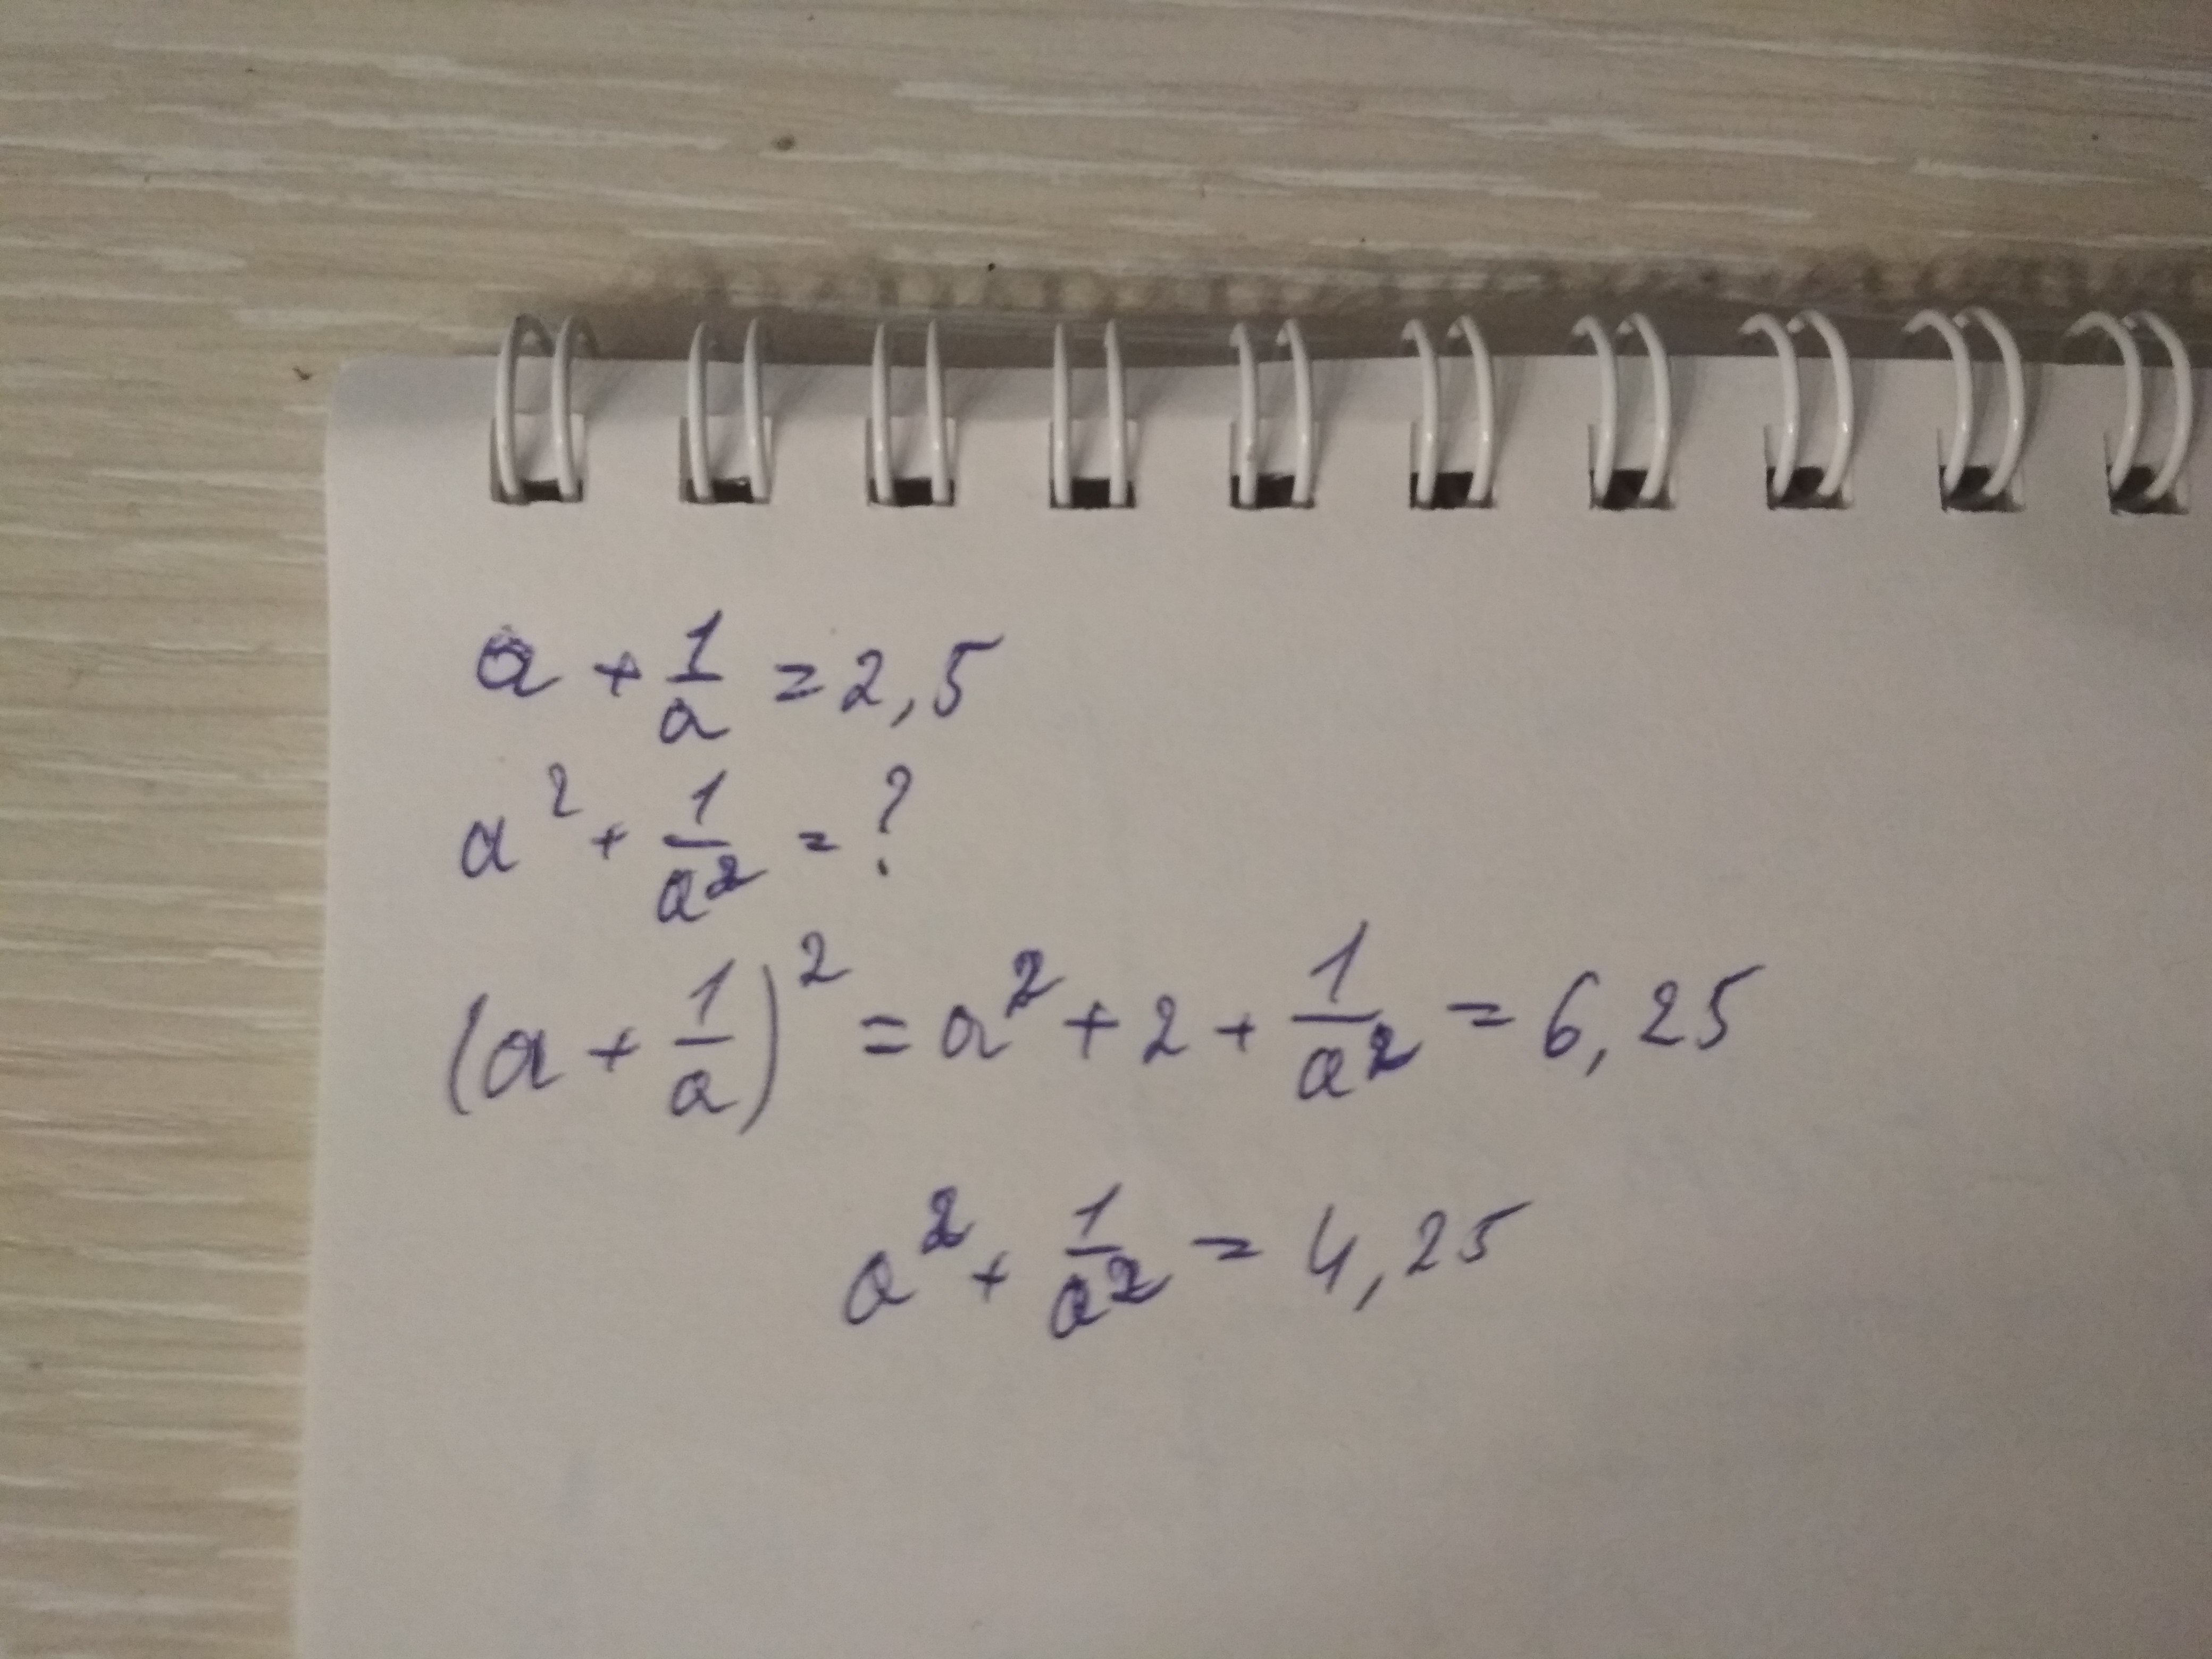 a + 1/a = 2,5
a² + 1/a² = ?
(a + 1/a)² = a² + 2 + 1/a² = 6,25
a² + 1/a² = 4,25